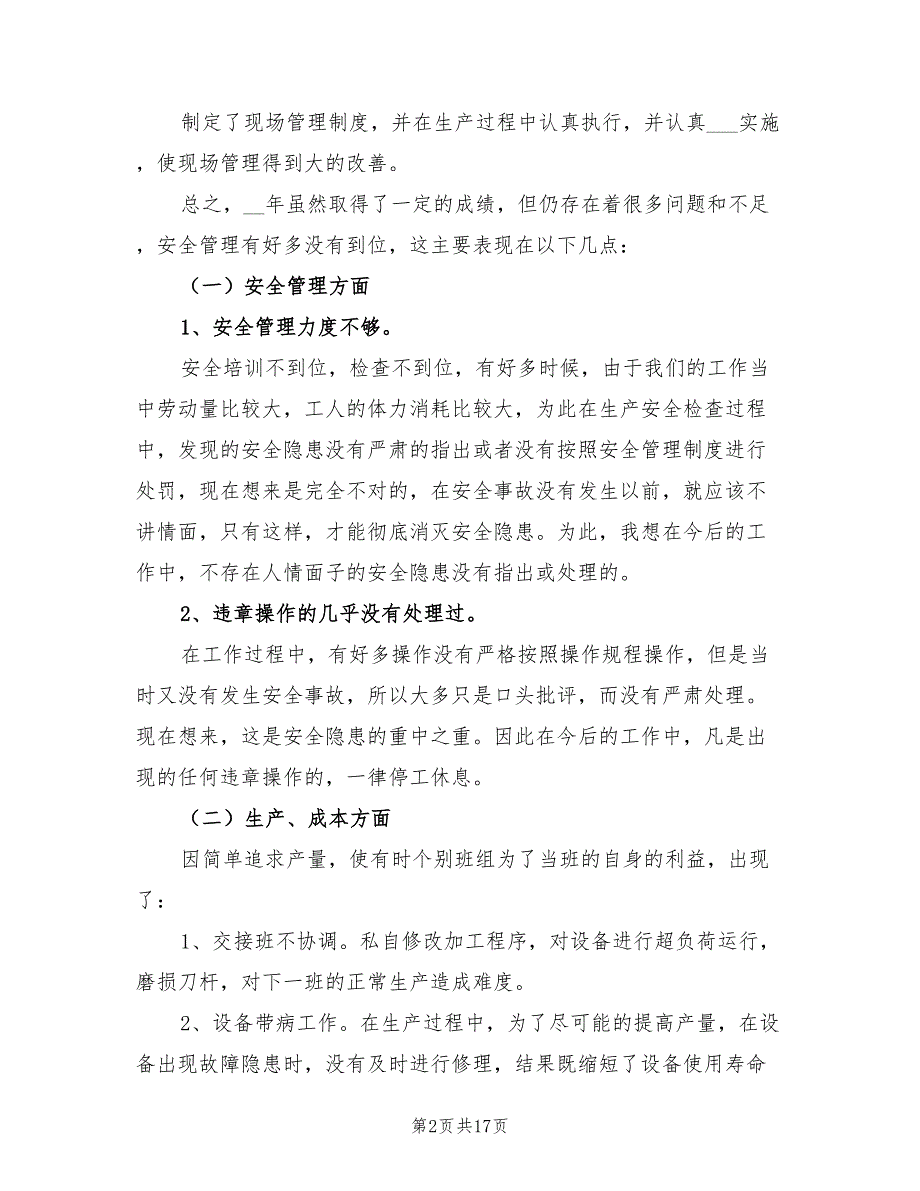 制定了现场管理制度，并在生产过程中认真执行，并认真___实施
，使现场管理得到大的改善。
总之，__年虽然取得了一定的成绩，但仍存在着很多问题和不足
，安全管理有好多没有到位，这主要表现在以下几点：
（一）安全管理方面
1、安全管理力度不够。
安全培训不到位，检查不到位，有好多时候，由于我们的工作当
中劳动量比较大，工人的体力消耗比较大，为此在生产安全检查过程
中，发现的安全隐患没有严肃的指出或者没有按照安全管理制度进行
处罚，现在想来是完全不对的，在安全事故没有发生以前，就应该不
讲情面，只有这样，才能彻底消灭安全隐患。为此，我想在今后的工
作中，不存在人情面子的安全隐患没有指出或处理的。
2、违章操作的几乎没有处理过。
在工作过程中，有好多操作没有严格按照操作规程操作，但是当
时又没有发生安全事故，所以大多只是口头批评，而没有严肃处理。
现在想来，这是安全隐患的重中之重。因此在今后的工作中，凡是出
现的任何违章操作的，一律停工休息。
（二）生产、成本方面
因简单追求产量，使有时个别班组为了当班的自身的利益，出现
了：
1、交接班不协调。私自修改加工程序，对设备进行超负荷运行，
磨损刀杆，对下一班的正常生产造成难度。
2、设备带病工作。在生产过程中，为了尽可能的提高产量，在设
备出现故障隐患时，没有及时进行修理，结果既缩短了设备使用寿命
第2页共17页